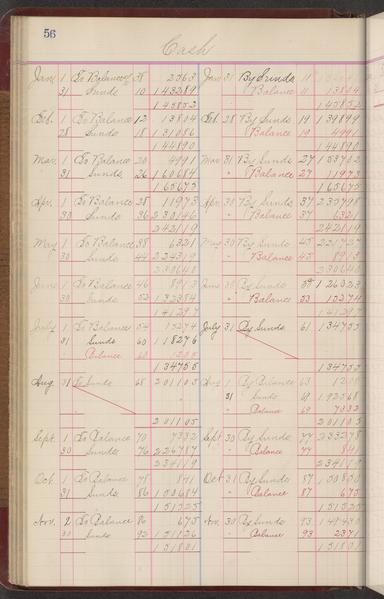 56
Cash
Jan 1 To Balance 38 2563 Jan 31 By Sunds 11
31 Sunds 10 143289 " Balance 11 13804
145852 145852
Feb. 1 To Balance 12 13804 Feb 28 By Sunds 19 139899
28 Sunds 18 131086 " Balance 19 4991
144890 144890
Mar. 1 To Balance 20 4991 Mar 31 By Sunds 27 153702
31 " Sunds 26 160684 " Balance 27 11973
165675 165675
Apr. 1 To Balance 28 11973 Apr 30 By Sunds 37 235798
30 Sunds 36 230146 " Balance 37 6321
242119 242119
May 1 To Balance 38 6321 May 30 By Sunds 45 221727
30 Sunds 44 224319 " Balance 45 8913
230640 230640
June 1 To Balance 46 8913 June 30 By Sunds 126023
30 Sunds 52 132384 " Balance 53 15274
141297 141297
July 1 To Balance 54 15274 July 31 By Sunds 61 134755
31 Sunds 60 118276
" Balance 60 1205
134755 134755
Aug 31 To Sunds 68 201105 Aug 1 By Balance 63
31 Sunds 69
" Balance 69 7332
201105 201105
Sept. 1 To Balance 70 7332 Sept 30 By Sunds 77 233278
30 Sunds 76 226787 " Balance 77 841
234119 234119
Oct. 1 To Balance 78 841 Oct 31 By Sunds 87 150850
31 Sunds 86 150684 " Balance 87 675
151525 151525
Nov. 2 To Balance 675 Nov. 30 By Sunds 93 149430
30 Sunds 92 151126 " Balance 93 2371
151801 151801